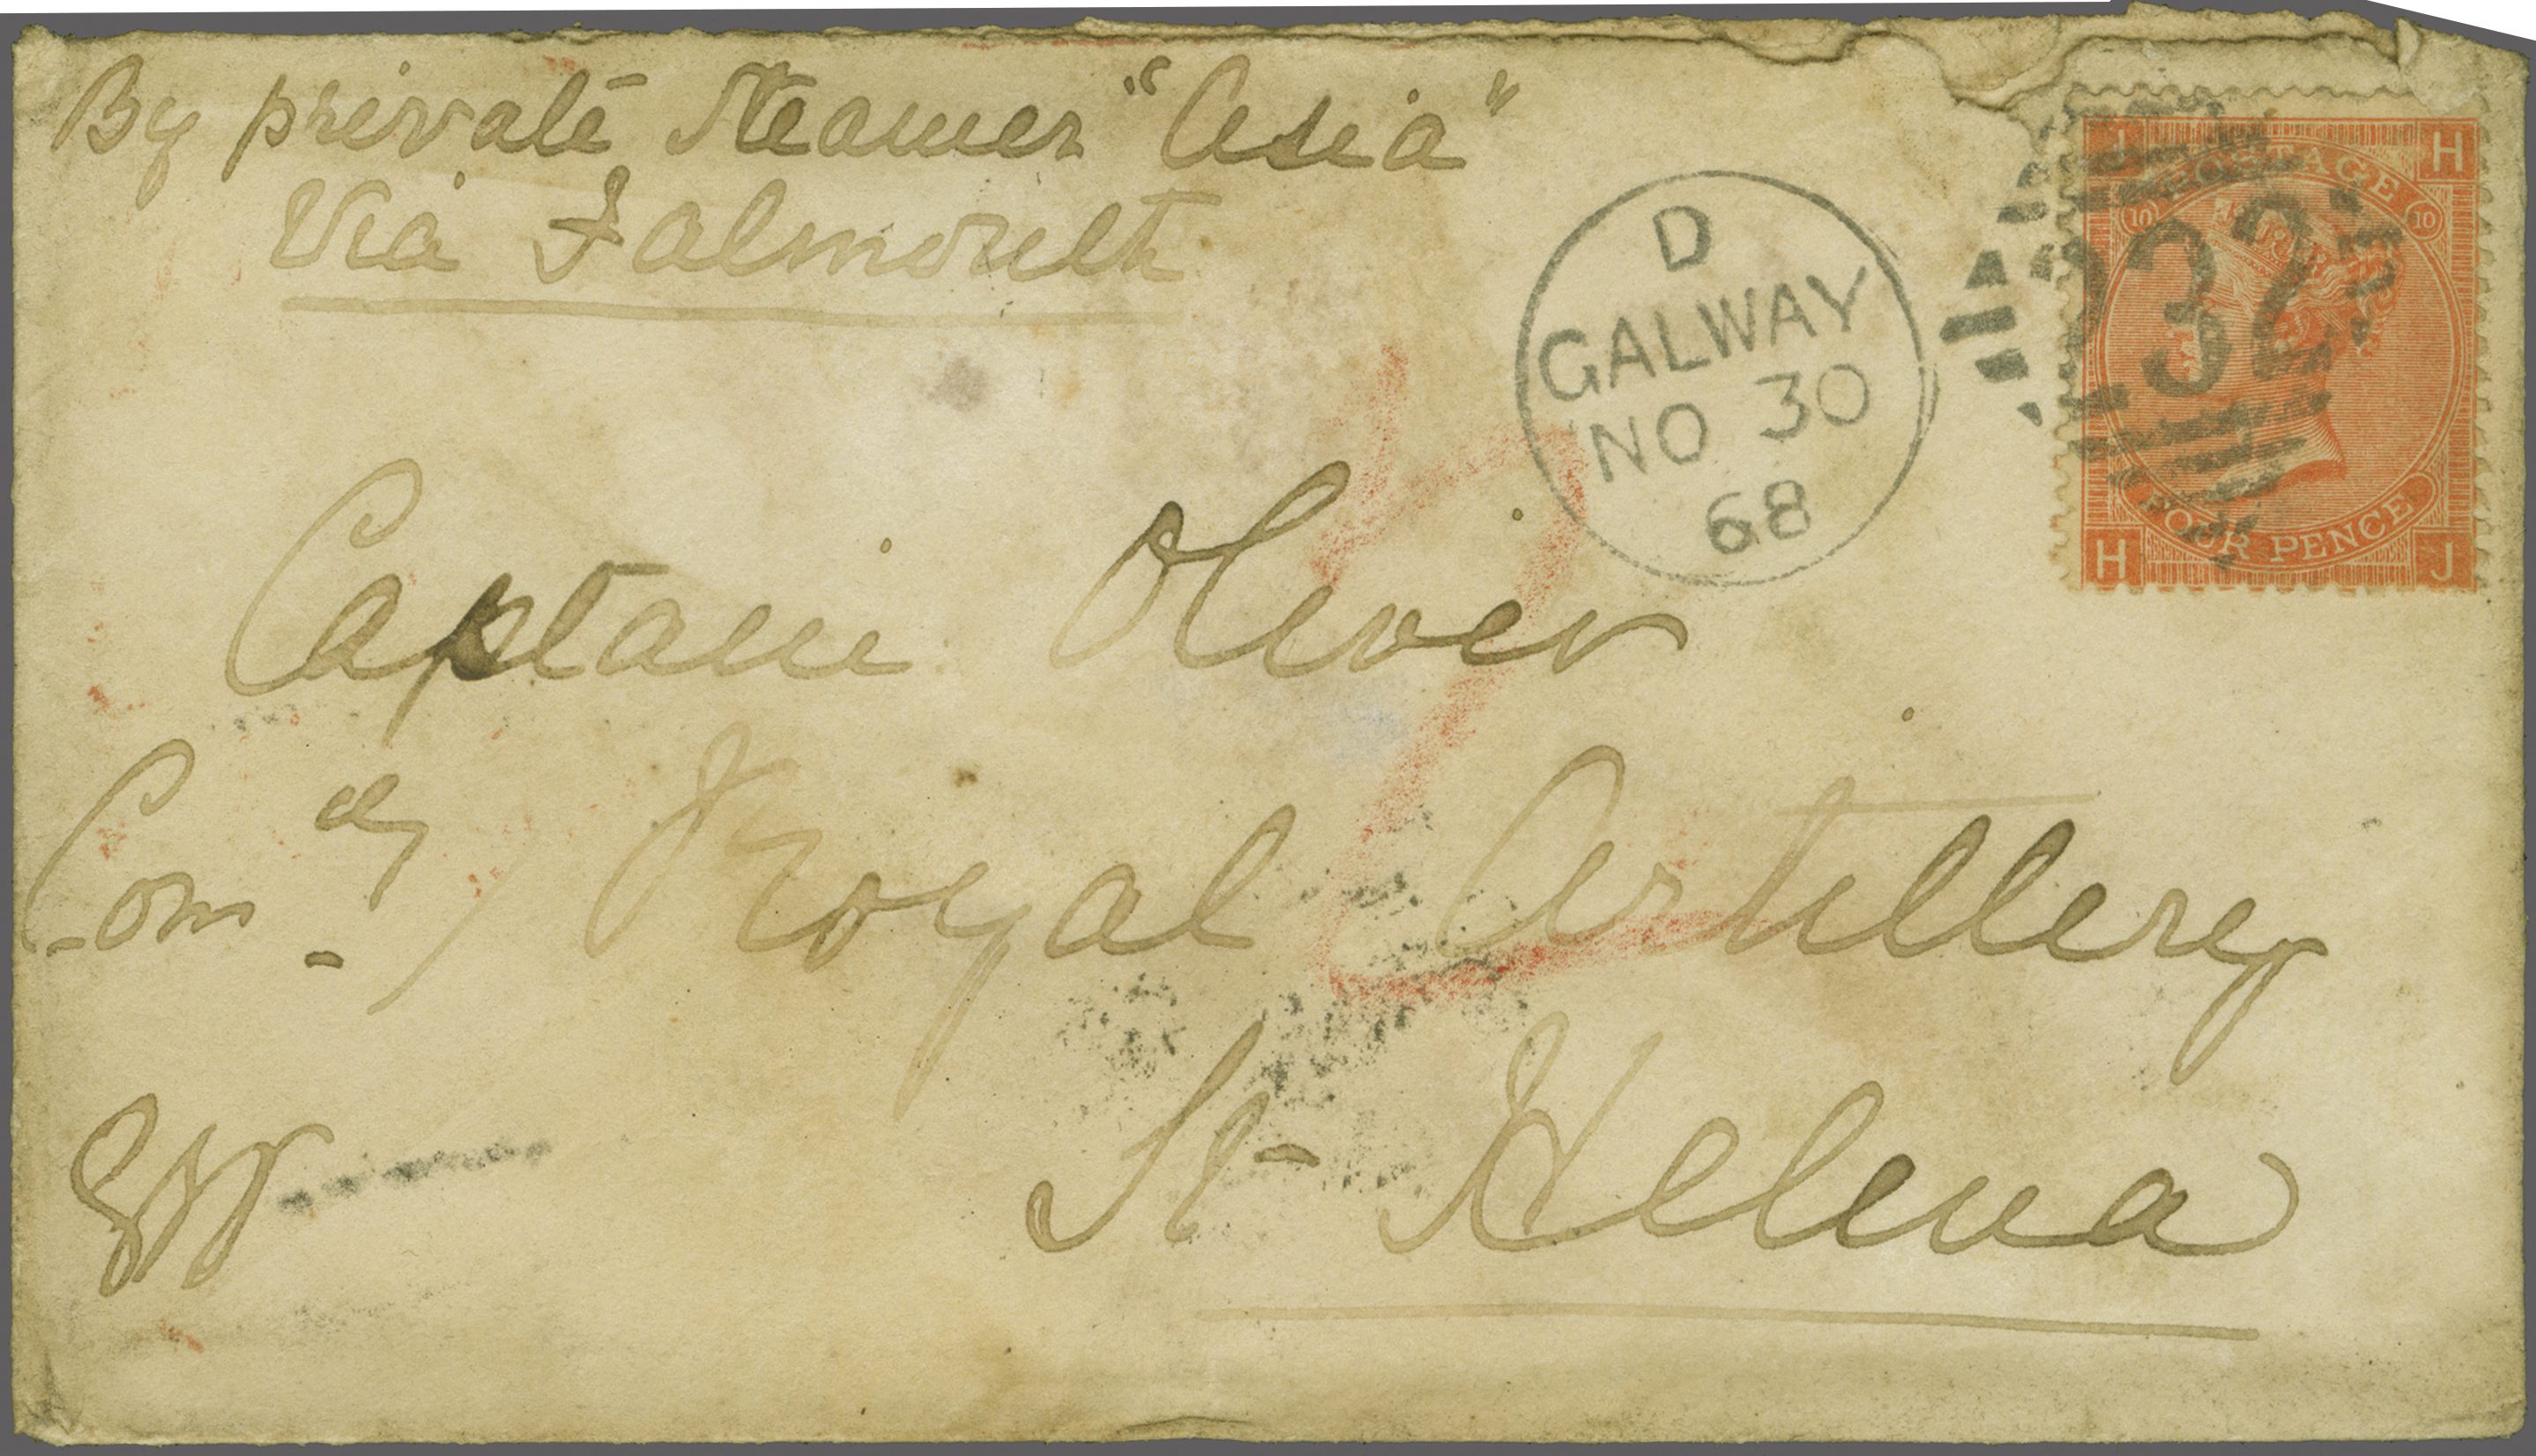 By private Steamer "Asia"
Via Falmouth
D
GALWAY
NO 30
68
J H
POSTAGE
10 10
232
FOUR PENCE
H J
Captain Oliver
Com dg Royal Artillery
St Helena